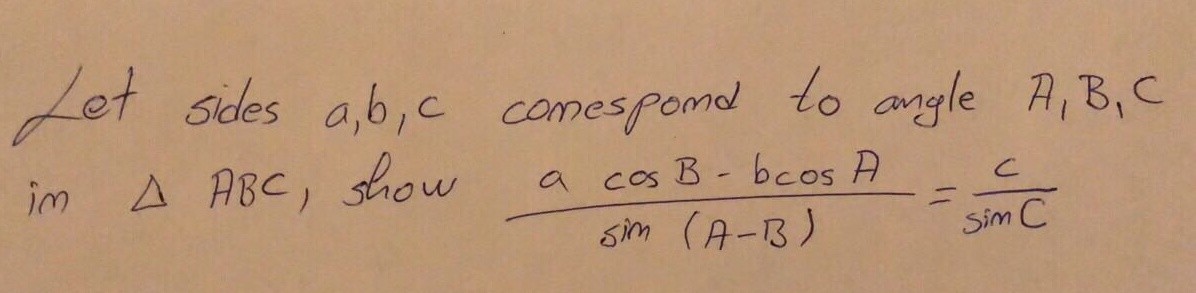 Let sides a,b,c correspond to angle A,B,C
in Δ ABC, show \frac{a cos B - b cos A}{sin (A-B)} = \frac{c}{sin C}